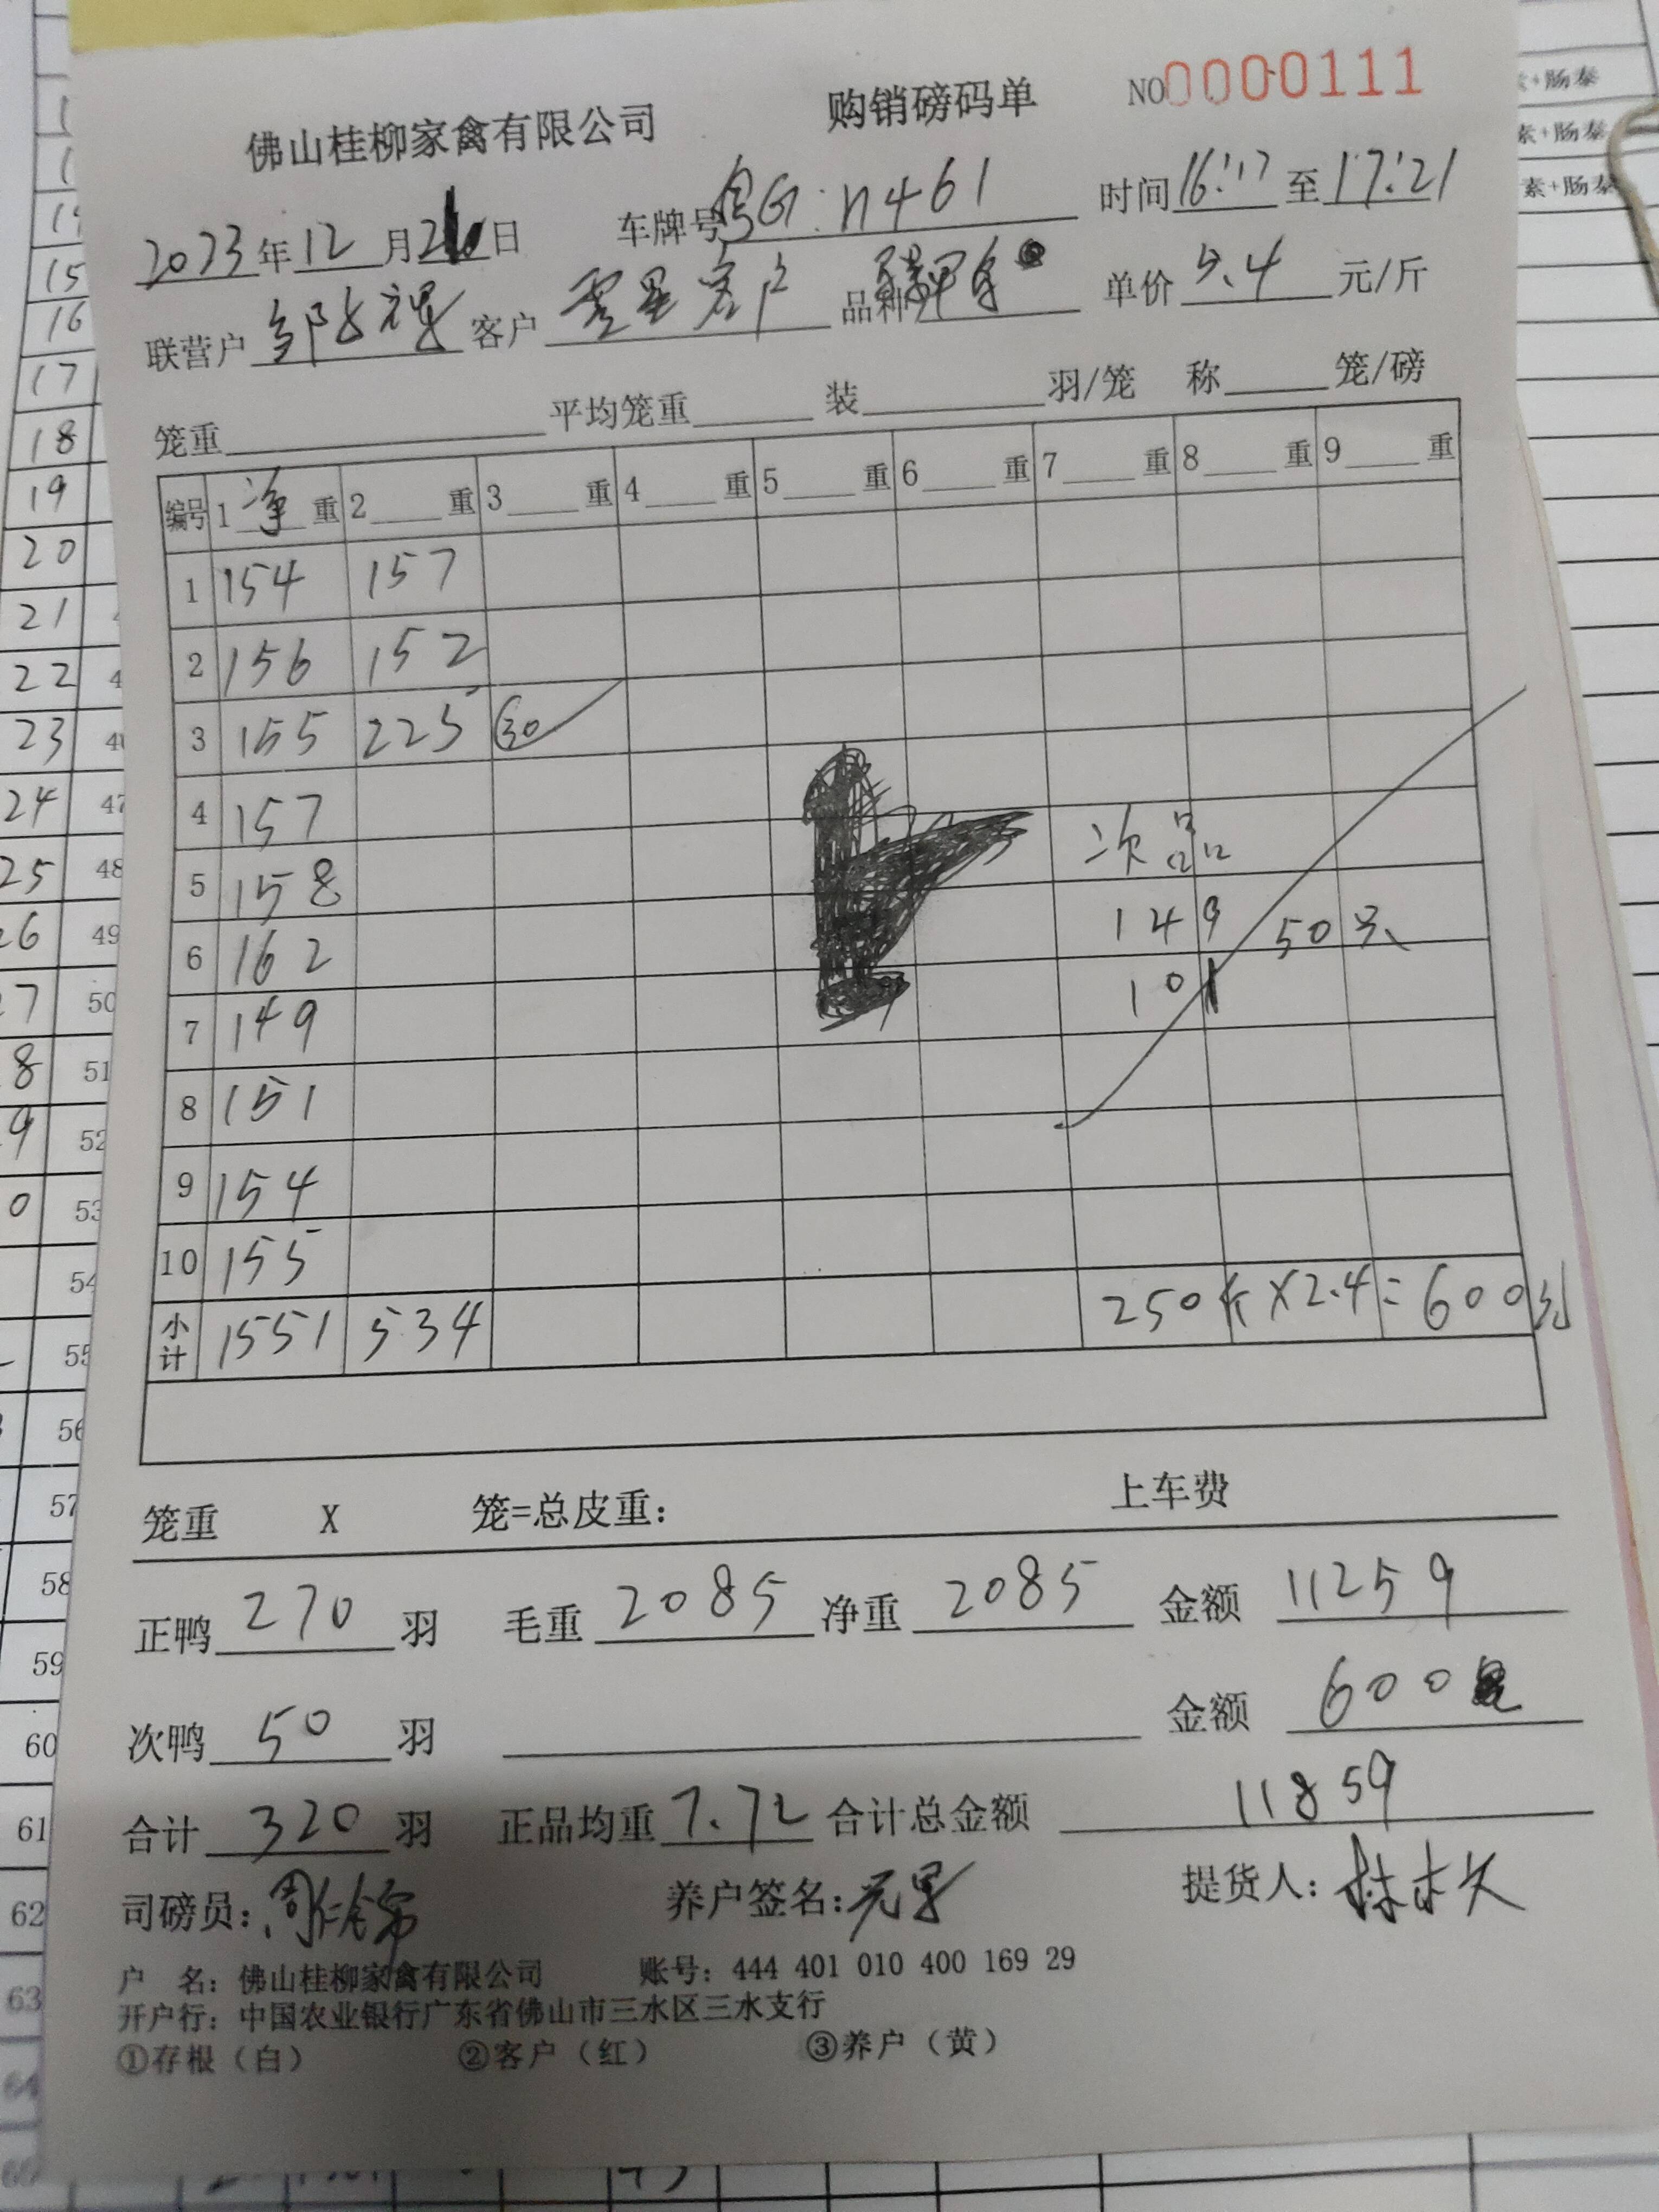 佛山桂柳家禽有限公司 购销磅码单 NO0000111
2023年12月2日 车牌号粤G:n461 时间16:17至17:21
联营户 客户零星客户 品种 单价5.4元/斤
笼重 平均笼重 装 羽/笼 称 笼/磅
编号 1净重 2重 3重 4重 5重 6重 7重 8重 9重
1 154 157
2 156 152
3 155 225 30
4 157 次品
5 158
6 162 149 50只
7 149 101
8 151
9 154
10 155
小计 1551 534 250斤×2.4=600元
笼重 X 笼=总皮重: 上车费
正鸭270羽 毛重2085 净重2085 金额11259
次鸭50羽 金额600
合计320羽 正品均重7.72 合计总金额11859
司磅员: 养户签名: 提货人:
户 名: 佛山桂柳家禽有限公司 账号: 444 401 010 400 169 29
开户行: 中国农业银行广东省佛山市三水区三水支行
①存根(白) ②客户(红) ③养户(黄)
15
16
17
18
19
20
21
22
23
24 47
25 48
26 49
50
51
52
53
54
55
56
57
58
59
60
61
62
63
64
+肠泰
素+肠泰
素+肠泰